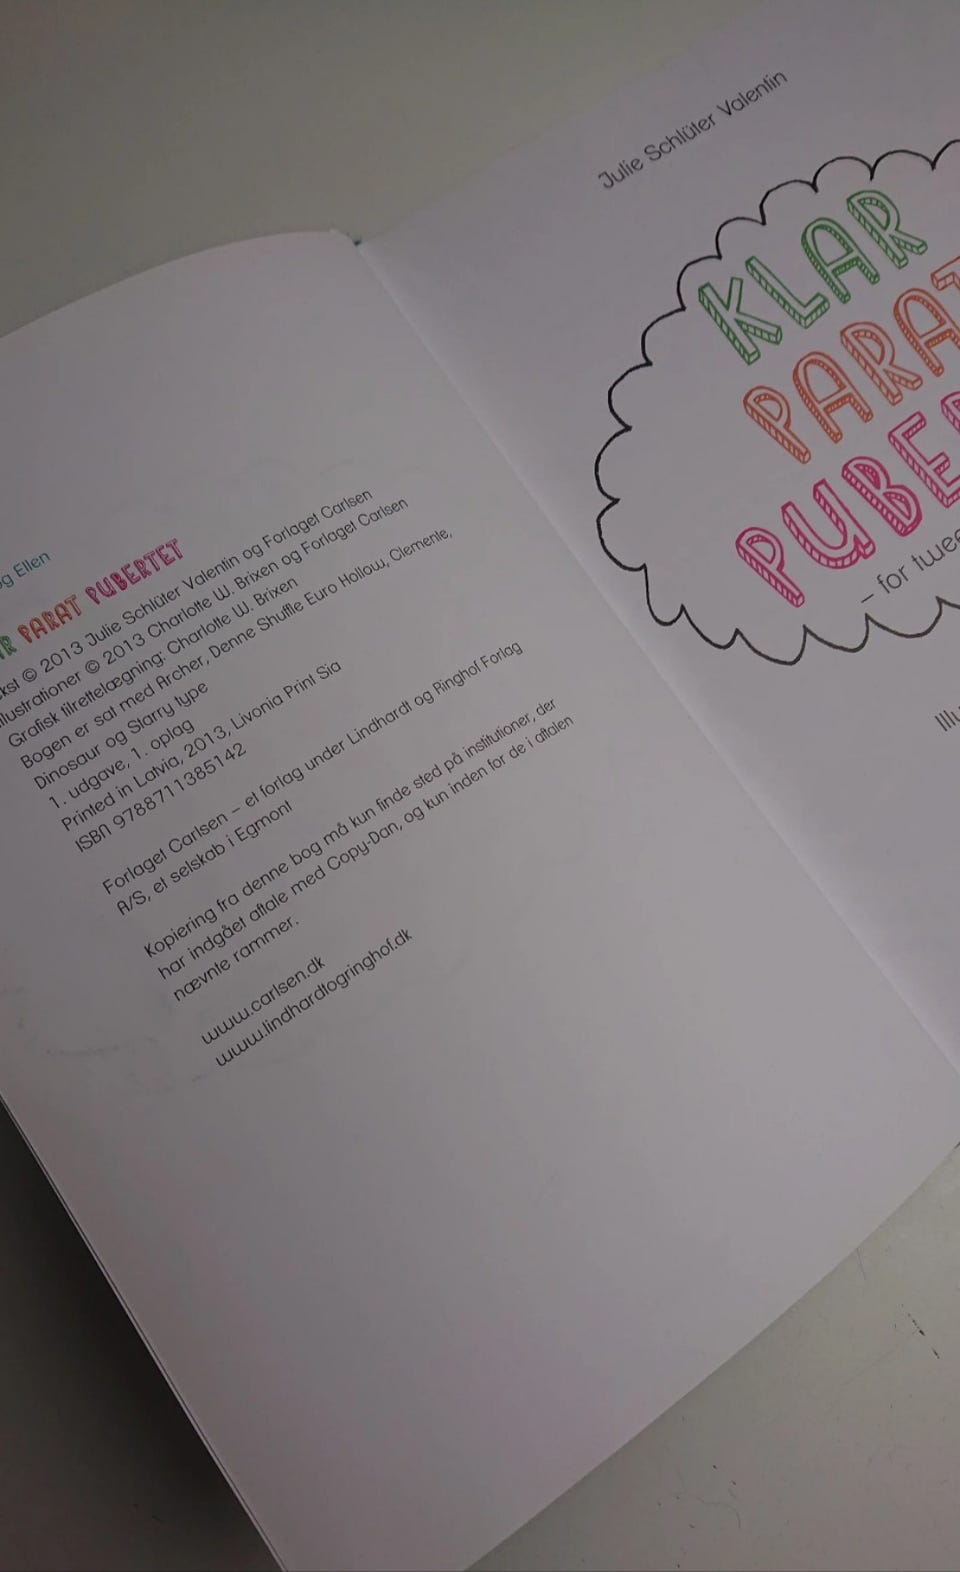 og Ellen
PARAT PUBERTET
© 2013 Julie Schlüter Valentin og Forlaget Carlsen
Illustrationer © 2013 Charlotte W. Brixen og Forlaget Carlsen
Grafisk tilrettelægning: Charlotte W. Brixen
Bogen er sat med Archer, Denne Shuffle Euro Hollow, Clemente,
Dinosaur og Starry type
1. udgave, 1. oplag
Printed in Latvia, 2013, Livonia Print Sia
ISBN 9788711385142
Forlaget Carlsen – et forlag under Lindhardt og Ringhof Forlag
A/S, et selskab i Egmont
Kopiering fra denne bog må kun finde sted på institutioner, der
har indgået aftale med Copy-Dan, og kun inden for de i aftalen
nævnte rammer.
www.carlsen.dk
www.lindhardtogringhof.dk
Julie Schlüter Valentin
KLAR
PARAT
PUBE
– for twee
Illu